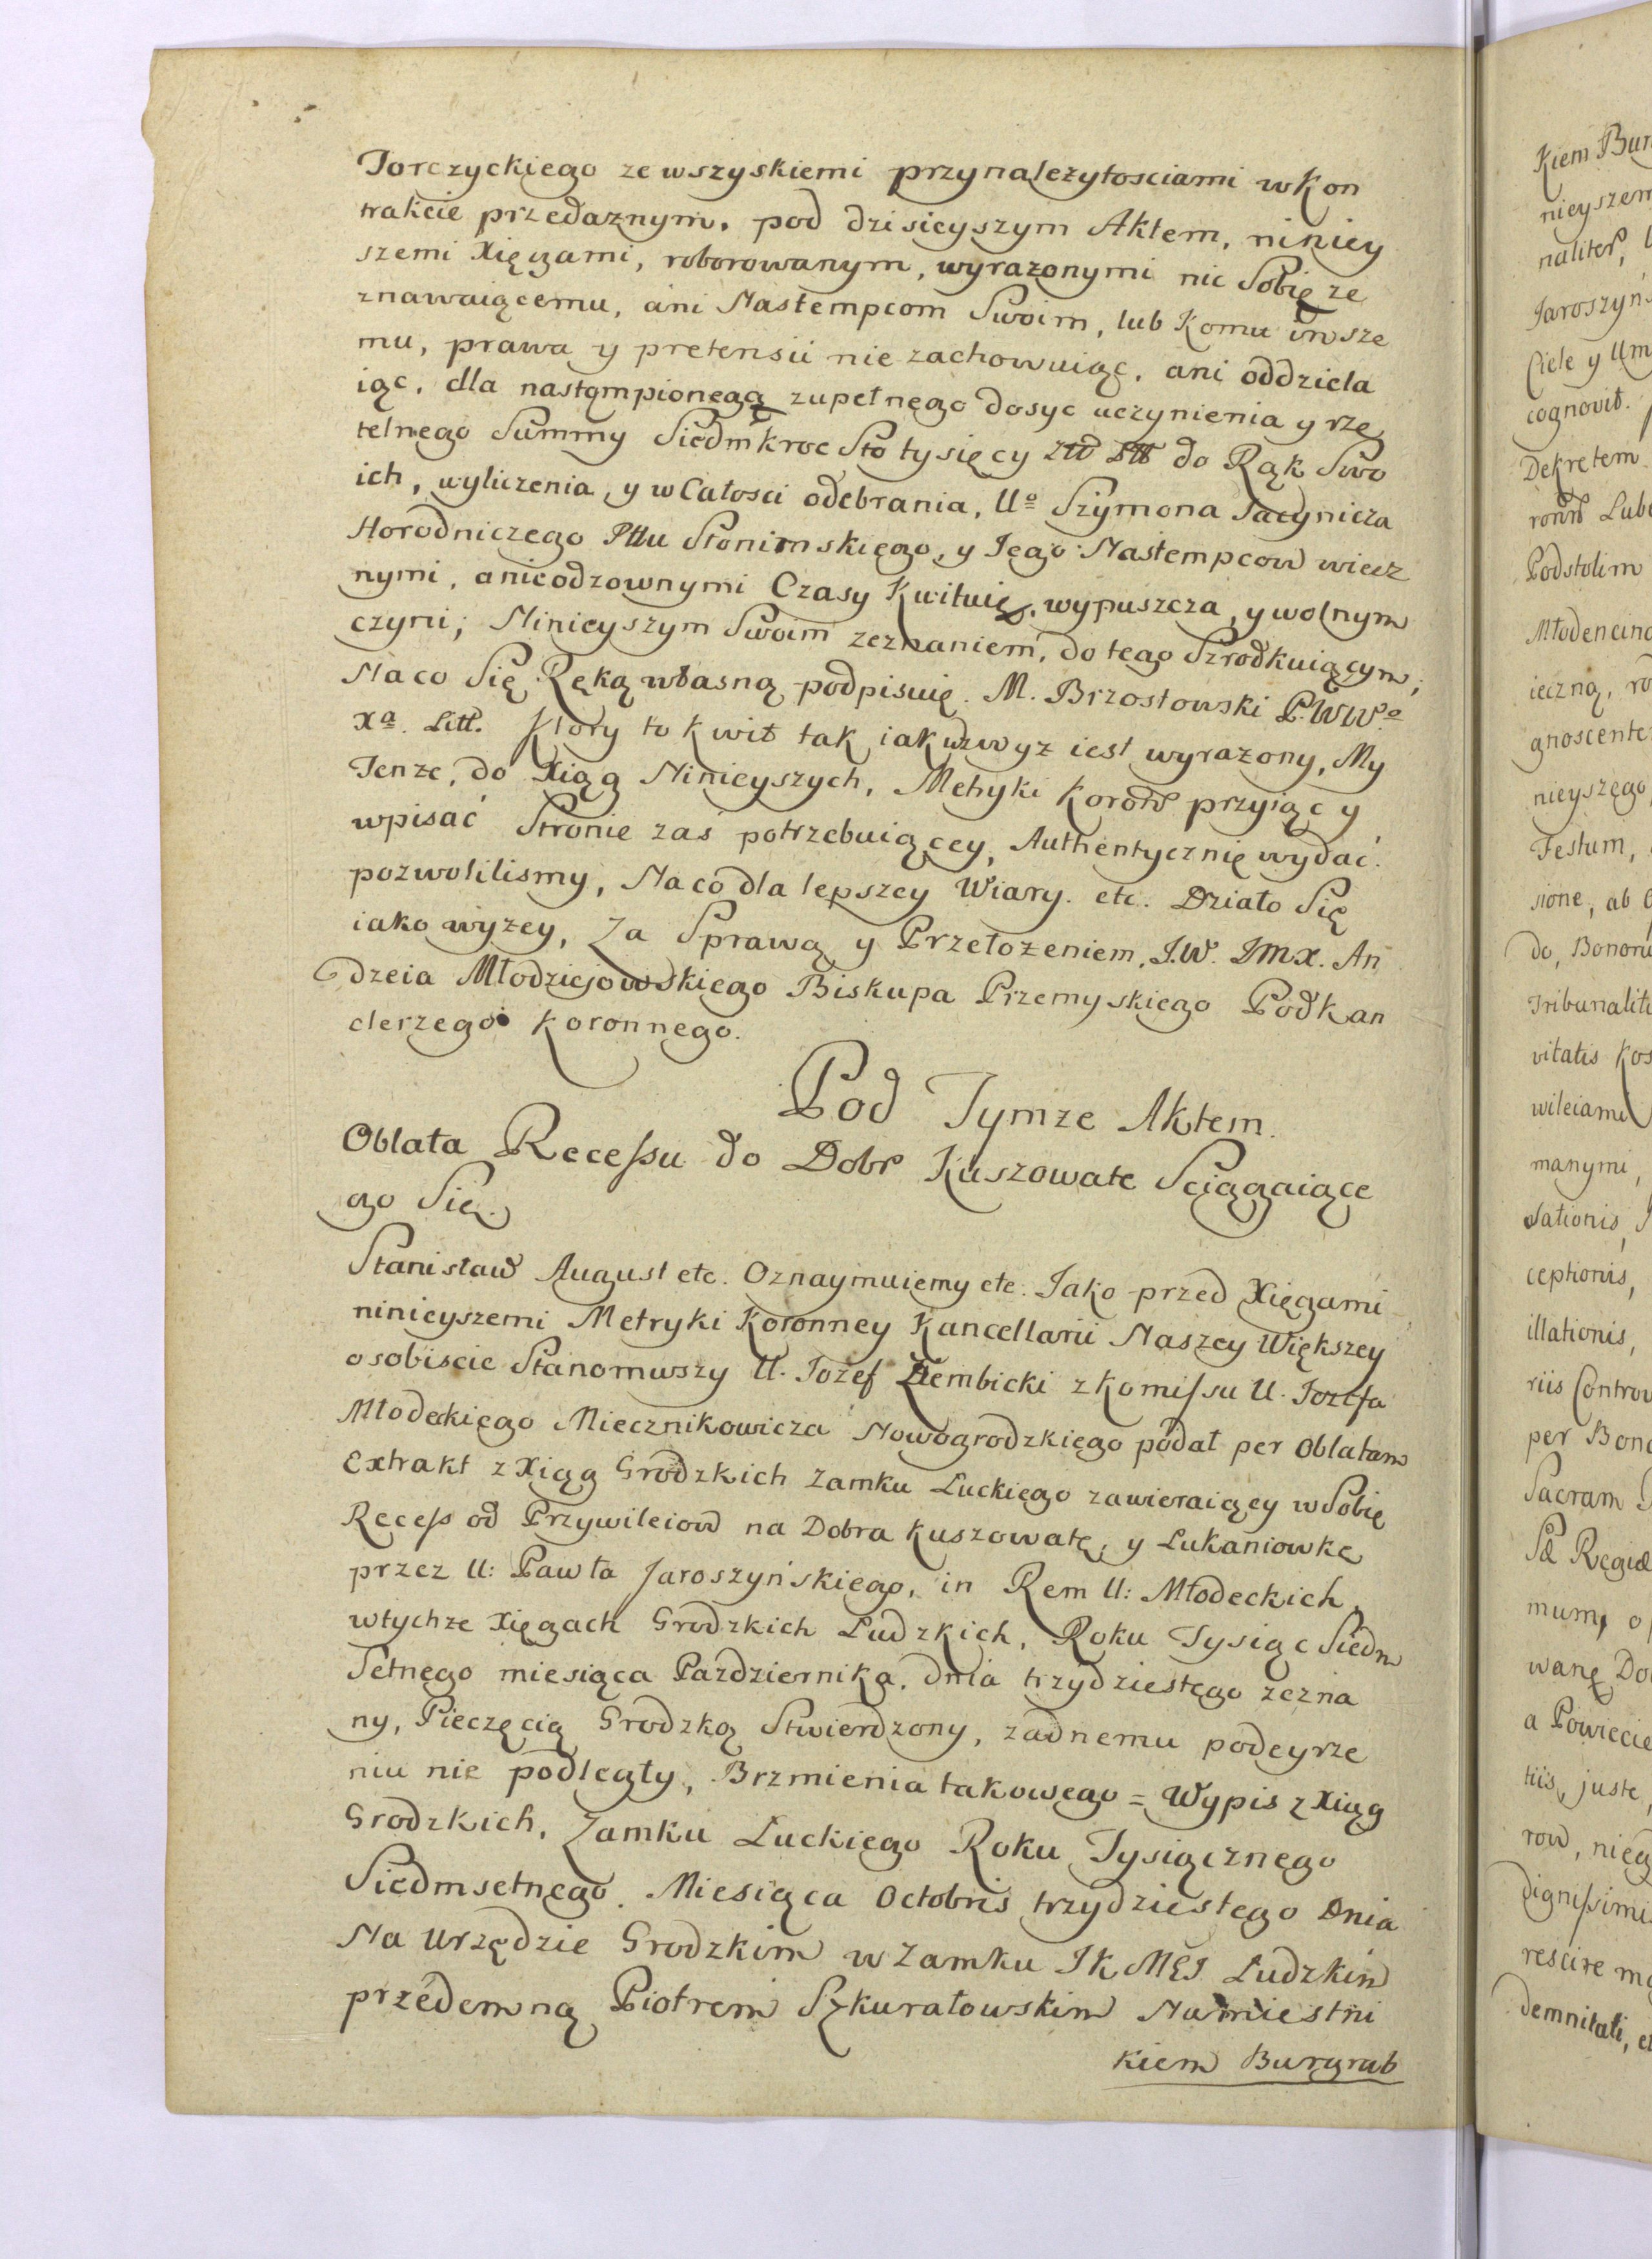 Torczyckiego ze wszyskiemi przynalezytosciami w Kon
trakcie przedaznym, pod dzisieyszym Aktem, niniey
szemi Xięgami, roborowanym, wyrazonymi nic Sobię ze
znawaiącemu, ani Nastempcom Swoim, lub Komu insze
mu, prawa y pretensii nie zachowuiąc, ani oddziela
iąc, dla nastąmpionegą zupełnęgo dosyc uczynienia y rze
telnego Summy Siedmkroc Sto tysięcy do Rąk Swo
ich, wyliczenia, y w Całosci odebrania, Uo Szymona
Horodniczego Pttu Słonimskięgo, y Jęgo Nastempcow wiecz
nymi, a nieodzownymi Czasy Kwituię, wypuszcza, y wolnym
czyni; Ninieyszym Swoim zeznaniem, do tego Szrodkuiącym;
Na co Się Ręką własną podpisuię. M. Brzostowski P. WWo
Xa. Litt. Ktory to Kwit tak iak wzwyz iest wyrazony, My
Tenze, do Xiąg Ninieyszych, Metryki Koron przyiąc y
wpisać Stronie zaś potrzebuiącey, Authentycznię wydać.
pozwolilismy, Na co dla lepszey Wiary. etc. Działo Się
iako wyzey, Za Sprawą y Przełozeniem, J.W. JMX. An
dzeia Młodziejowskięgo Biskupa Przemyskiego Podkan
clerzego Koronnęgo.
Pod Tymze Aktem.
Oblata Recessu do Dobr Kuszowate Sciągaiące
go Się.
Stanisław August etc. Oznaymuiemy etc. Jako przed Xięgami
ninieyszemi Metryki Koronney Kancellarii Naszey Większey
osobiscie Stanomwszy U. Jozef Ziembicki z Komissu U. Jozefa
Młodeckięgo Miecznikowicza Nowogrodzkięgo podał per Oblatam
Extrakt z Xiąg Grodzkich Zamku Luckięgo zawieraiący w Sobię
Recess od Przywileiow na Dobra Kuszowatę, y Lukaniowkę
przez U: Pawła Jaroszyńskiego, in Rem U: Młodeckich,
w tychze Xięgach Grodzkich Ludzkich, Roku Tysiąc Siedm
Setnęgo miesiąca Pazdziernika, dnia trzydziestęgo zezna
ny, Pieczęcią Grodzką Stwierdzony, zadnemu podeyrze
niu nie podległy, Brzmienia takowęgo = Wypis z Xiąg
Grodzkich, Zamku Luckięgo Roku Tysiącznęgo
Siedmsetnęgo. Miesiąca Octobris trzydziestęgo Dnia
Na Urzędzie Grodzkim w Zamku JKMCI Ludzkim
przedemną Piotrem Szkuratowskim Namiestni
kiem Burgrab
Kiem Bur
nieyszem
naliter,
Jaroszyńs
Ciele y Um
cognovit.
Dekretem
Lub
Podstolim
Młodencino
ieczną, ro
gnoscente
nieyszęgo
Festum,
sione, ab
do, Bonoru
Tribunaliti
vitatis Kos
wileiami
manymi,
sationis,
ceptionis,
illationis,
riis Controv
per Bono
Sacram
Sæ Regiæ
mum, o
wanę Do
a Powiecie
tiis, juste
row, nięg
dignissimi
rescire mo
demnitati, e